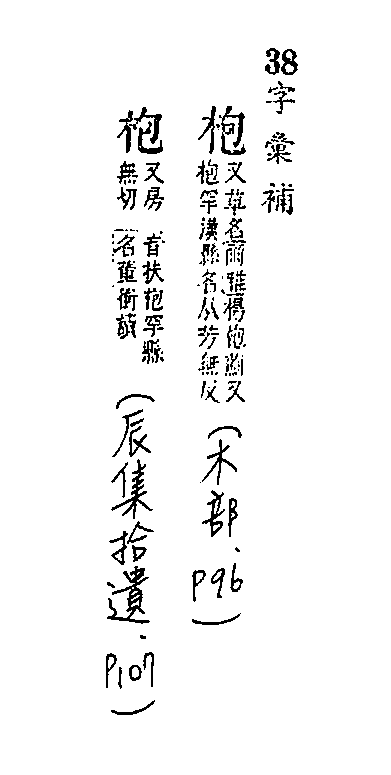 38字彙補
枹
又草名爾雅楊枹薊又
枹罕漢縣名从芳無反
(木部、P96)
枹
又房
無切
音扶枹罕縣
名董衝讀
(辰集拾遺、P107)